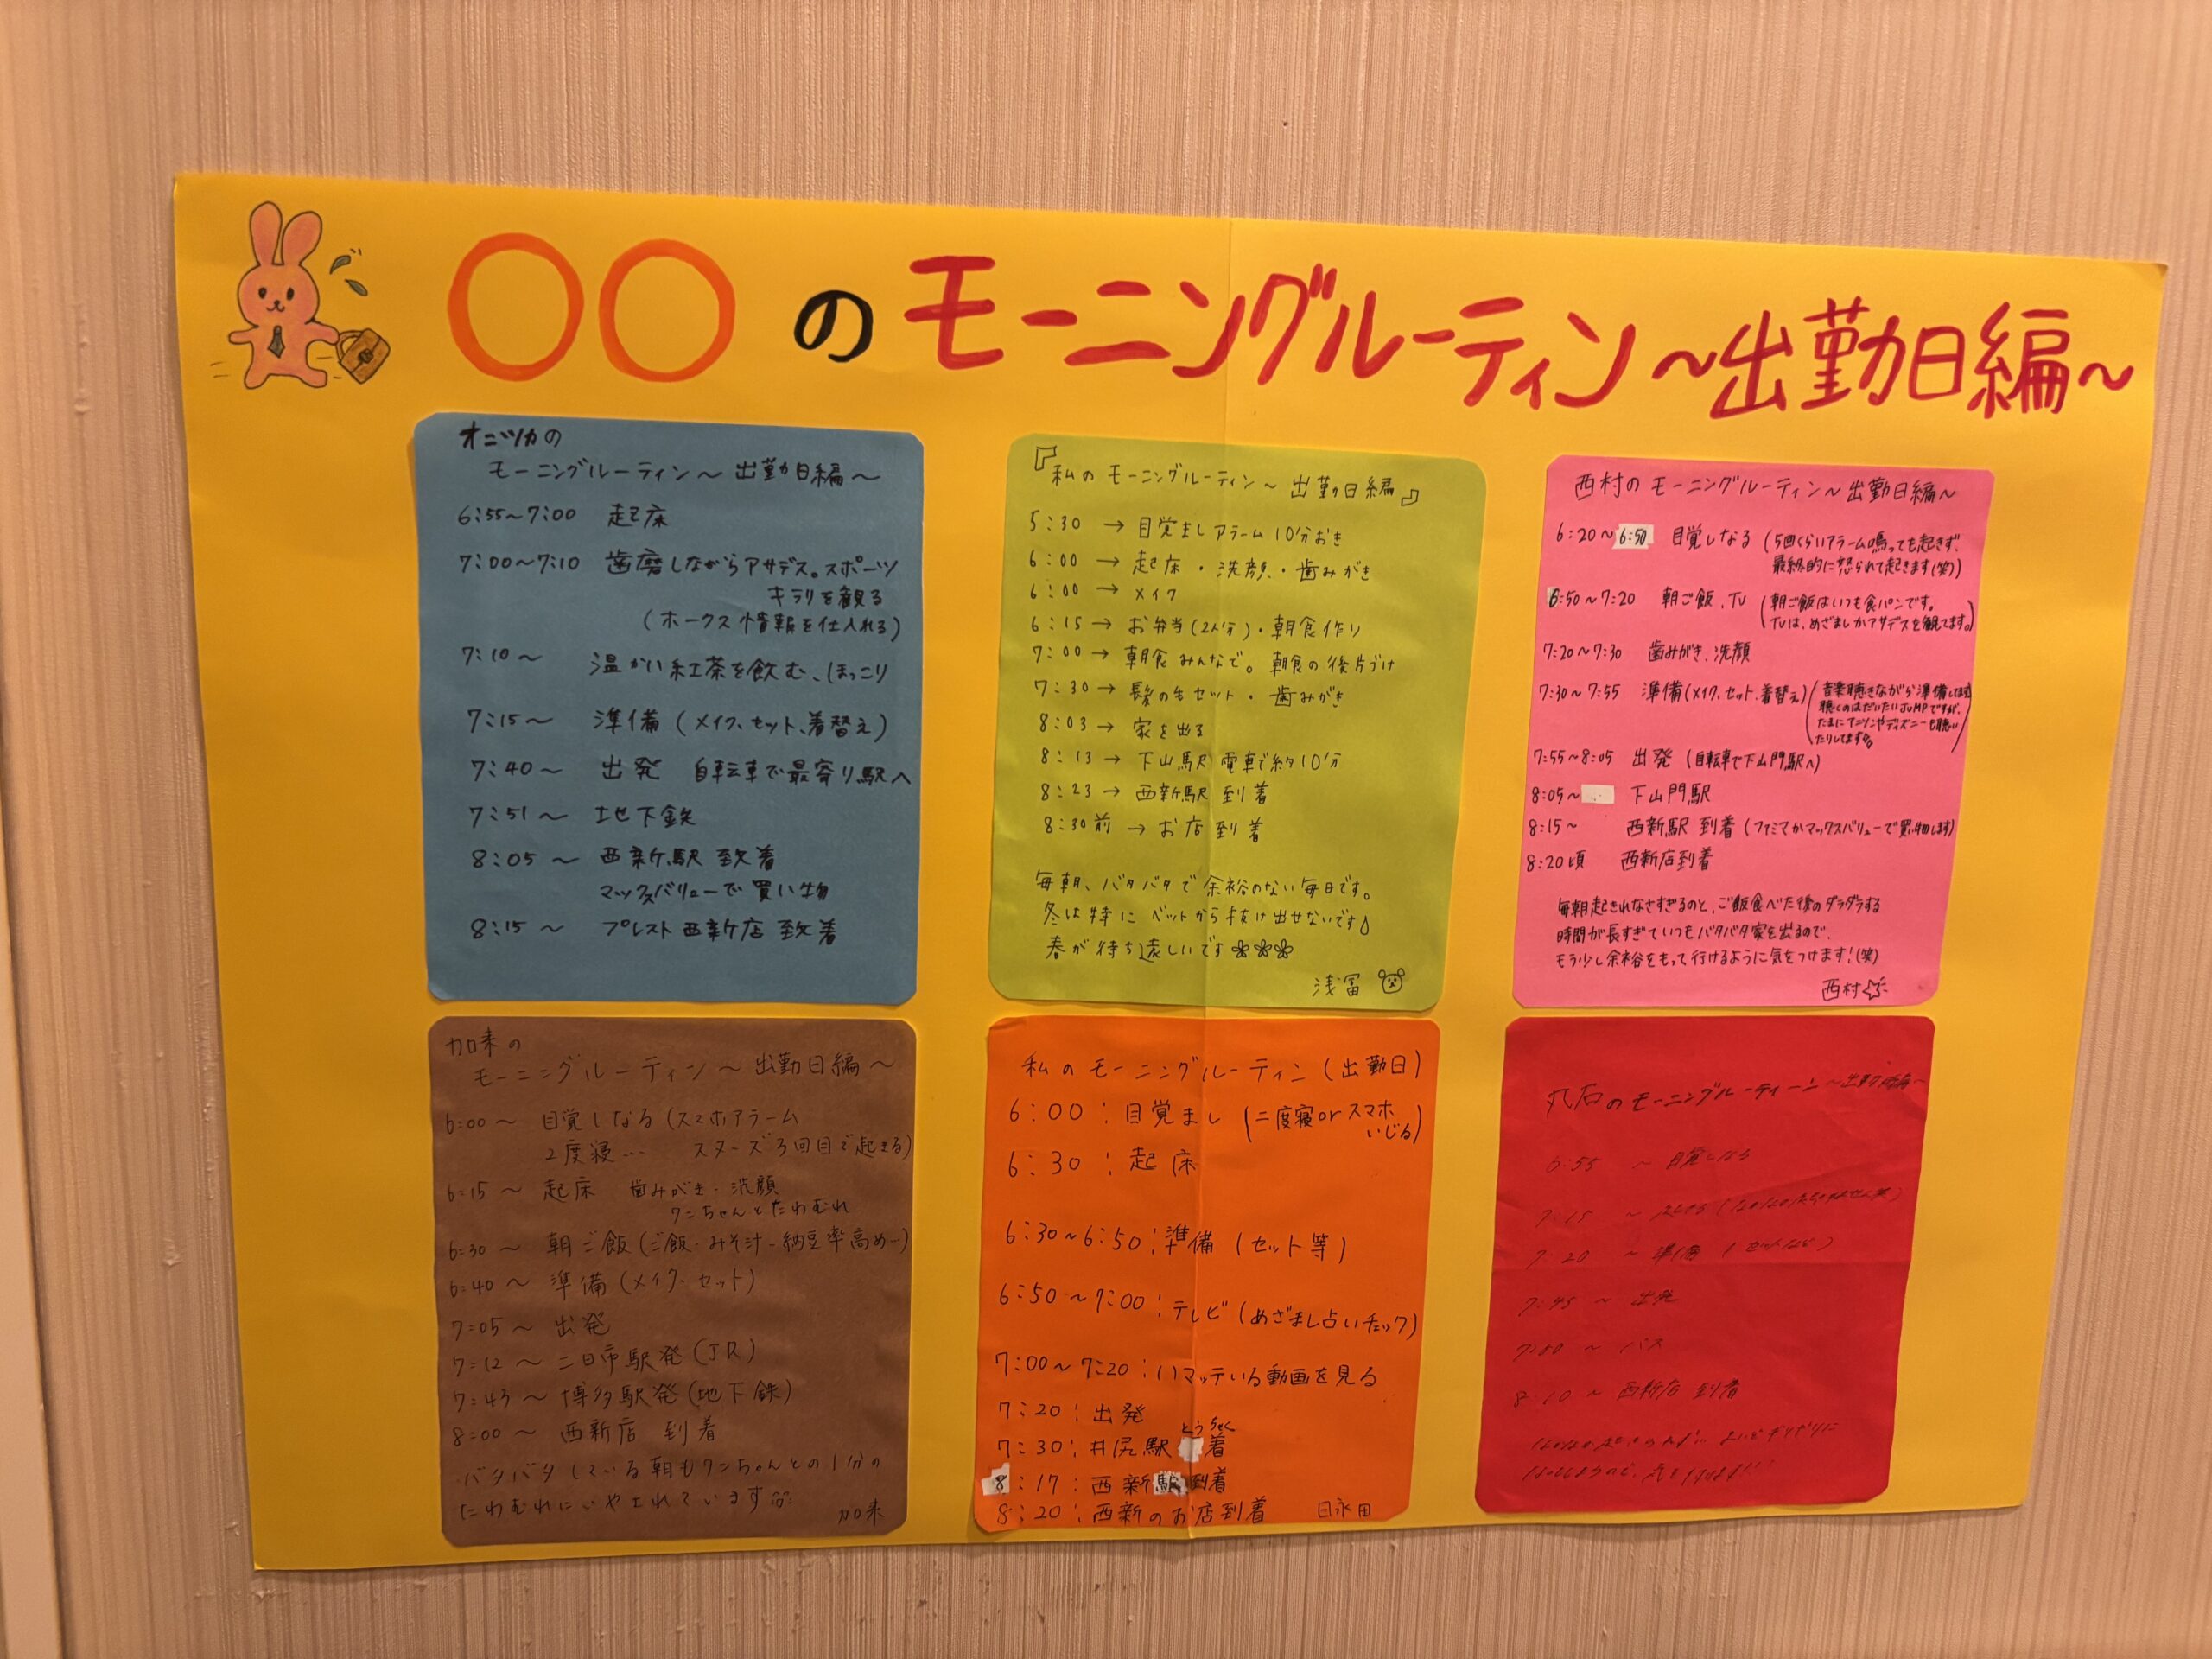 〇〇のモーニングルーティン～出勤日編～
オニツカの
モーニングルーティン～出勤日編～
6:55～7:00 起床
7:00～7:10 歯磨しながらアサデス。スポーツ
キラリを観る
(ホークス情報を仕入れる)
7:10～ 温かい紅茶を飲む、ほっこり
7:15～ 準備(メイク、セット、着替え)
7:40～ 出発 自転車で最寄り駅へ
7:51～ 地下鉄
8:05～ 西新駅 到着
マックスバリューで買い物
8:15～ プレスト西新店 到着
『私のモーニングルーティン～出勤日編』
5:30→目覚ましアラーム10分おき
6:00→起床・洗顔・歯みがき
6:00→メイク
6:15→お弁当(2人分)・朝食作り
7:00→朝食みんなで。朝食の後片づけ
7:30→髪の毛セット・歯みがき
8:03→家を出る
8:13→下山駅 電車で約10分
8:23→西新駅 到着
8:30前→お店到着
毎朝、バタバタで余裕のない毎日です。
冬は特にベットから抜け出せないです
春が待ち遠しいです
浅冨
西村のモーニングルーティン～出勤日編～
6:20～6:50 目覚しなる(5回くらいアラーム鳴っても起きず、
最終的に怒られて起きます(笑))
6:50～7:20 朝ご飯、TV(朝ご飯はいつも食パンです。
TVは、めざましかアサデスを観てます。)
7:20～7:30 歯みがき、洗顔
7:30～7:55 準備(メイク、セット、着替え)(音楽聴きながら準備します
聴くのはだいたいJUMPですが、
たまにアニソンやディズニーも聴い
たりしてます)
7:55～8:05 出発(自転車で下山門駅へ)
8:05～ 下山門駅
8:15～ 西新駅 到着(ファミマかマックスバリューで買い物します)
8:20頃 西新店到着
毎朝起きれなさすぎるのと、ご飯食べた後のダラダラする
時間が長すぎていつもバタバタ家を出るので、
もう少し余裕をもって行けるように気をつけます!(笑)
西村☆
加来の
モーニングルーティン～出勤日編～
6:00～ 目覚しなる(スマホアラーム
2度寝… スヌーズ3回目で起きる)
6:15～ 起床 歯みがき・洗顔
ワンちゃんとたわむれ
6:30～ 朝ご飯(ご飯・みそ汁-納豆率高め-)
6:40～ 準備(メイク・セット)
7:05～ 出発
7:12～ 二日市駅発(JR)
7:43～ 博多駅発(地下鉄)
8:00～ 西新店 到着
バタバタしている朝もワンちゃんとの1分の
たわむれにいやされています
加来
私のモーニングルーティン(出勤日)
6:00:目覚まし(二度寝orスマホ
いじる)
6:30:起床
6:30～6:50:準備(セット等)
6:50～7:00:テレビ(めざまし占いチェック)
7:00～7:20:ハマッている動画を見る
7:20:出発
とうちゃく
7:30:井尻駅 着
8:17:西新駅到着
8:20:西新のお店到着 日永田
丸石のモーニングルーティーン～出勤日編～
6:55 ～目覚しなる
7:15 ～
7:20 ～準備
7:45 ～出発
7:50 ～バス
8:10～西新店 到着